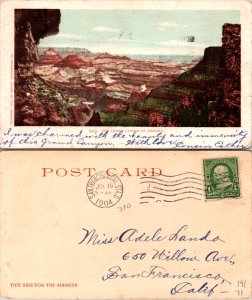 GRAND CANYON OF ARIZONA.
I was charmed with the beauty and immensity
of this Grand Canyon. With love
POST CARD
1904
Miss Adele Lando
650 Willow Ave,
San Francisco,
Calif
THIS SIDE FOR THE ADDRESS